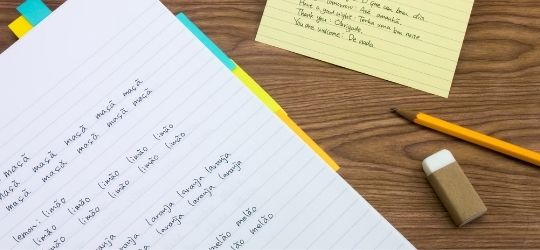 bom dia.
tomorrow: Até amanhã.
Have a good night: Tenha uma boa noite.
Thank you: Obrigado.
You are welcome: De nada.
maçã maçã maçã maçã maçã
maçã maçã maçã maçã maçã
maçã
lemon: limão limão limão limão limão
limão limão limão limão limão
limão
laranja laranja laranja
laranja laranja laranja
melão melão
melão melão